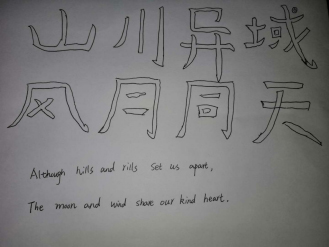 山川异域
风月同天
Although hills and rills set us apart,
The moon and wind share our kind heart.